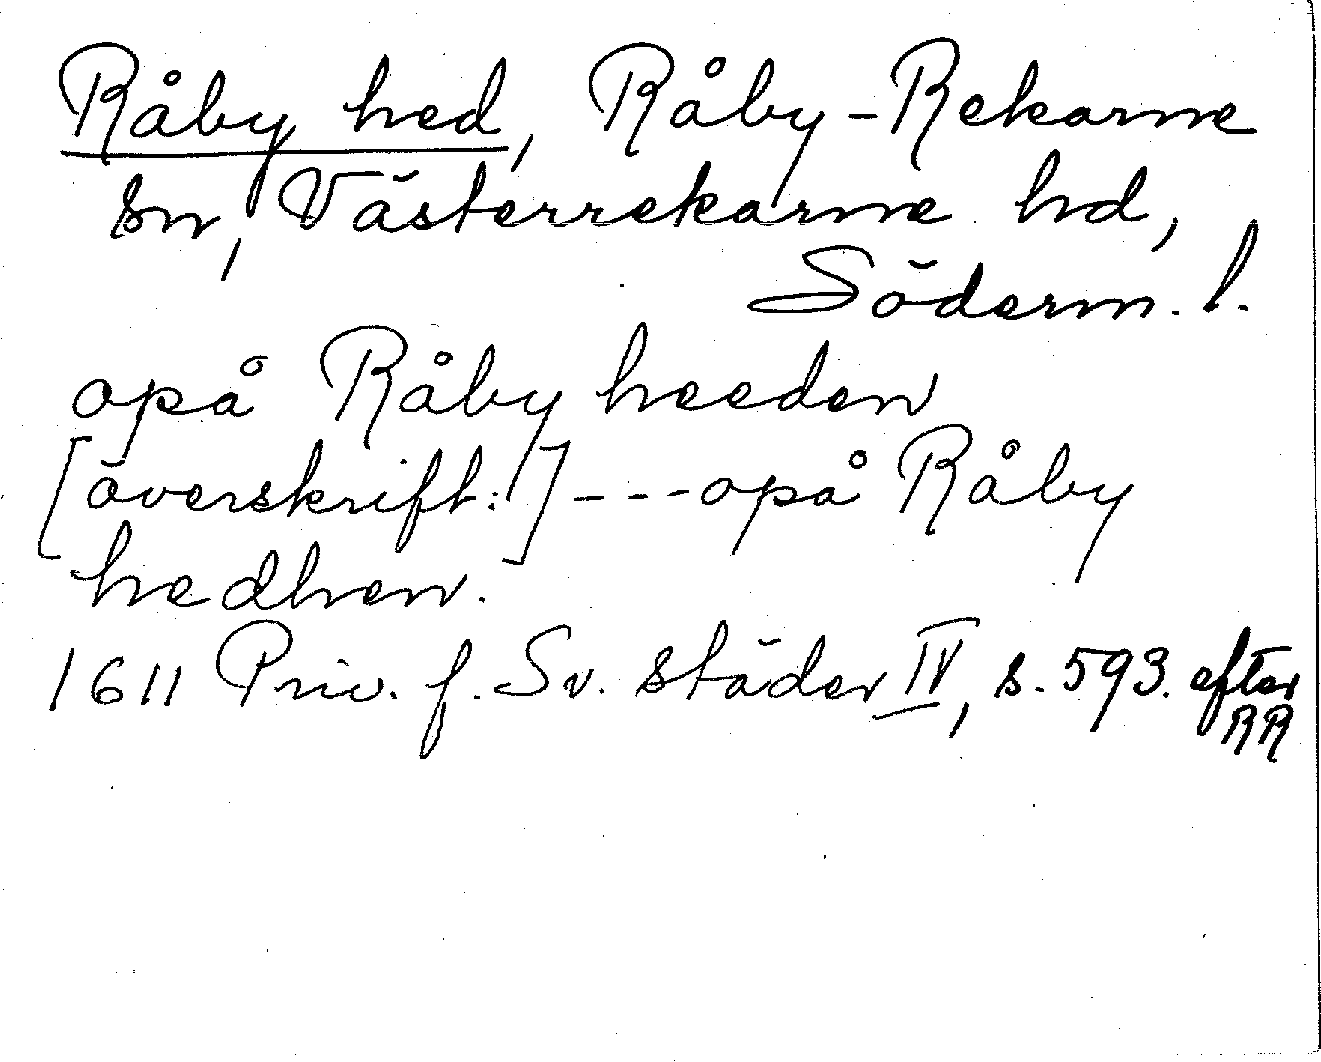 Råby hed, Råby-Rekarne
sn, Västerrekarne hd,
Söderm. l.
opå Råby heeden
[överskrift:] - - - opå Råby
hedhen.
1611 Priv. f. Sv. städer IV, s. 593. efter
RR